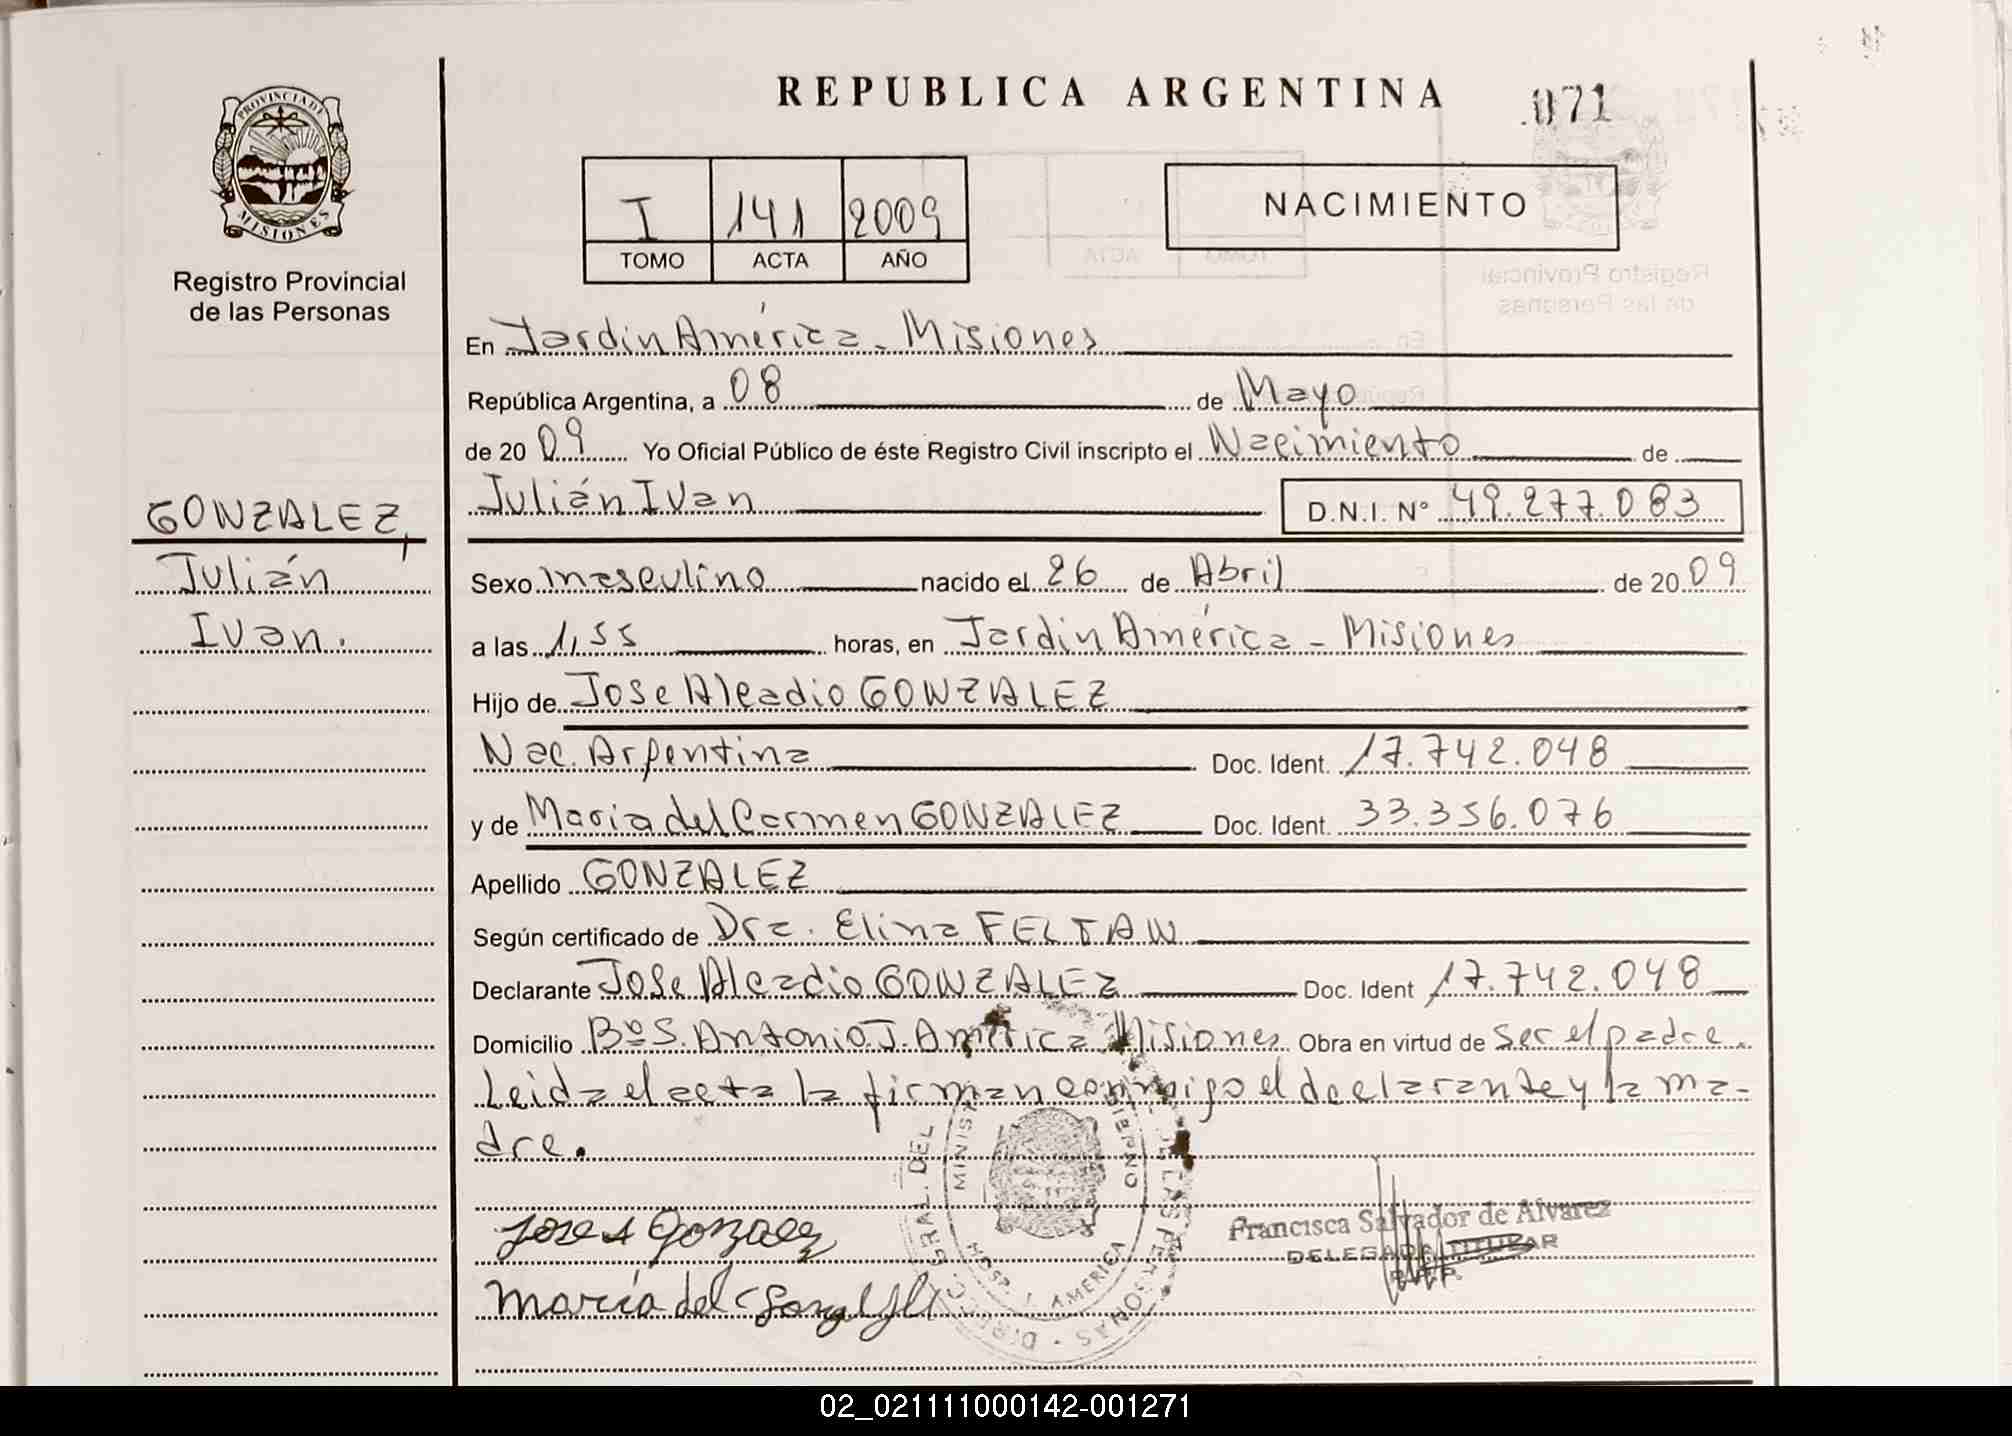 REPUBLICA ARGENTINA
071
PROVINCIA DE MISIONES
Registro Provincial
de las Personas
I 141 2009
TOMO ACTA AÑO
NACIMIENTO
En Jardín América - Misiones
República Argentina, a 08 de Mayo
de 20 09 Yo Oficial Público de éste Registro Civil inscripto el Nacimiento de
Julián Ivan D.N.I. N° 49.277.083
GONZALEZ,
Julián
Ivan.
Sexo masculino nacido el 26 de Abril de 20 09
a las 1,55 horas, en Jardín América - Misiones
Hijo de Jose Alcadio GONZALEZ
Nac. Argentina Doc. Ident. 17.742.048
y de Maria del Carmen GONZALEZ Doc. Ident. 33.356.076
Apellido GONZALEZ
Según certificado de Dra. Elina FELTAN
Declarante Jose Alcadio GONZALEZ Doc. Ident 17.742.048
Domicilio Bº S. Antonio J. América Misiones Obra en virtud de ser el padre.
Leida el acta la firman conmigo el declarante y la ma-
dre.
Jose A Gonzalez
María del C
Francisca Salvador de Alvarez
DELEGADA TITULAR
R.P.P.
DIREC. GRAL. DEL LAS PERSONAS
MINIST GOBIERNO
HOSP. J. AMERICA
02_021111000142-001271